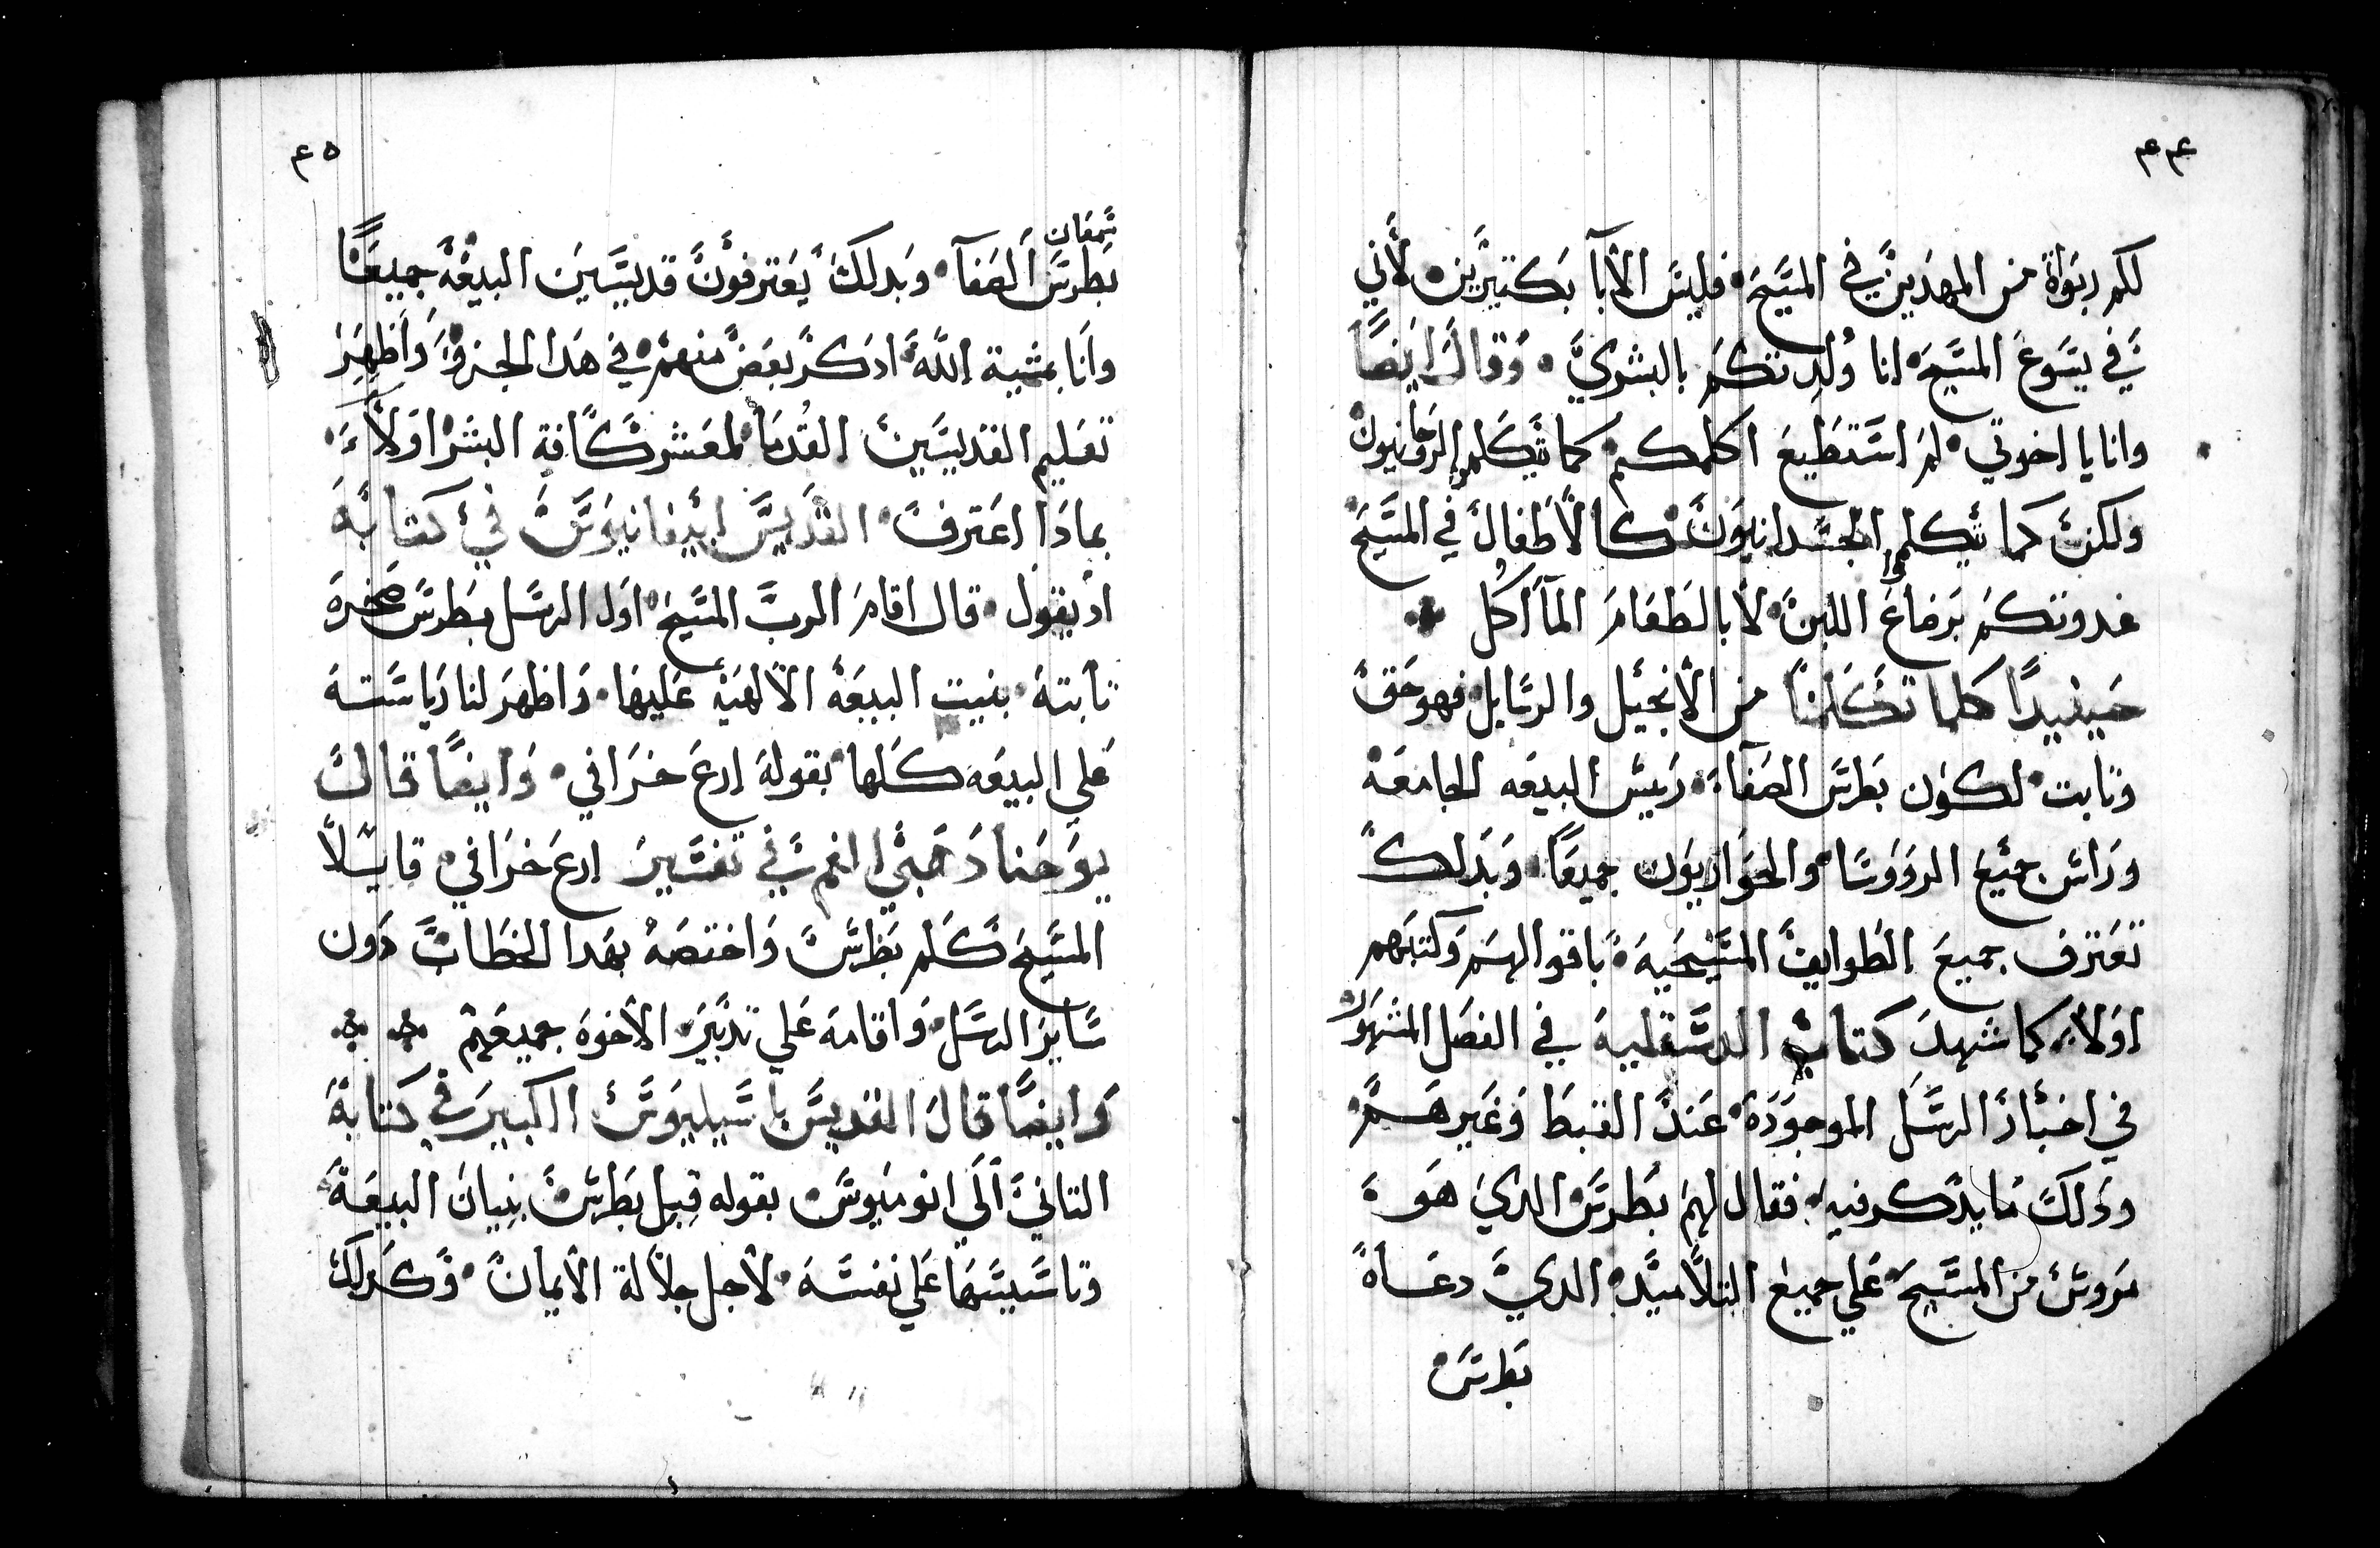 ٤٤
لكم ربوات من المهدين في المسيح فليس الابآ بكتيرين لأني
في يسوع المسيح انا ولدتكم بالبشري وقال ايضًا
وانا يا اخوتي لم استطيع اكلمكم كما تكلموا الروحانيون
ولكن كما تكلموا الجسدانيون كالأطفال في المسيح
غدوتكم برضاع اللبن لا بالطعام المآاكل
حينيدًا كلما تكلمنا من الأنجيل والرسايل فهو حق
وتابت لكون بطرس الصفآ رييس البيعه الجامعة
وراس جميع الرووسا والحواريون جميعًا وبدلك
تعترف جميع الطوايف المسيحية باقوالهم وكتبهم
اولا كما شهد كتاب الدسقلية في الفصل المشهور
في اخبار الرسل الموجودة عند القبط وغيرهم
ودلك ما يدكر فيه فقال لهم بطرس الدي هو
مروس من المسيح علي جميع التلاميد الدي دعاه
بطرس
٤٥
شمعان
بطرس الصفآ وبدلك يعترفون قديسين البيعة جميعًا
وانا بمشية الله ادكر بعض منهم في هدا الجزو واظهر
تعليم القديسين القدما لمعشر كافة البشر اولاء
بمادا اعترف القديس ابيفانيوس في كتابة
اد يقول قال اقام الرب المسيح اول الرسل بطرس صخرة
تابتة بنيت البيعة الالهية عليها واظهر لنا رياستة
علي البيعه كلها بقولة ارع خرافي وايضًا قال
يوحنا دهبي الفم في تفسير ارع خرافي قايلًا
المسيح كلم بطرس واختصه بهدا الخطاب دون
ساير الرسل واقامة علي تدبير الأخوة جميعهم
وايضًا قال القديس باسيليوس الكبير في كتابة
التاني الي انوميوس بقوله قبل بطرس بنيان البيعة
وتاسيسها علي نفسة لأجل جلالة الأيمان وكدلك